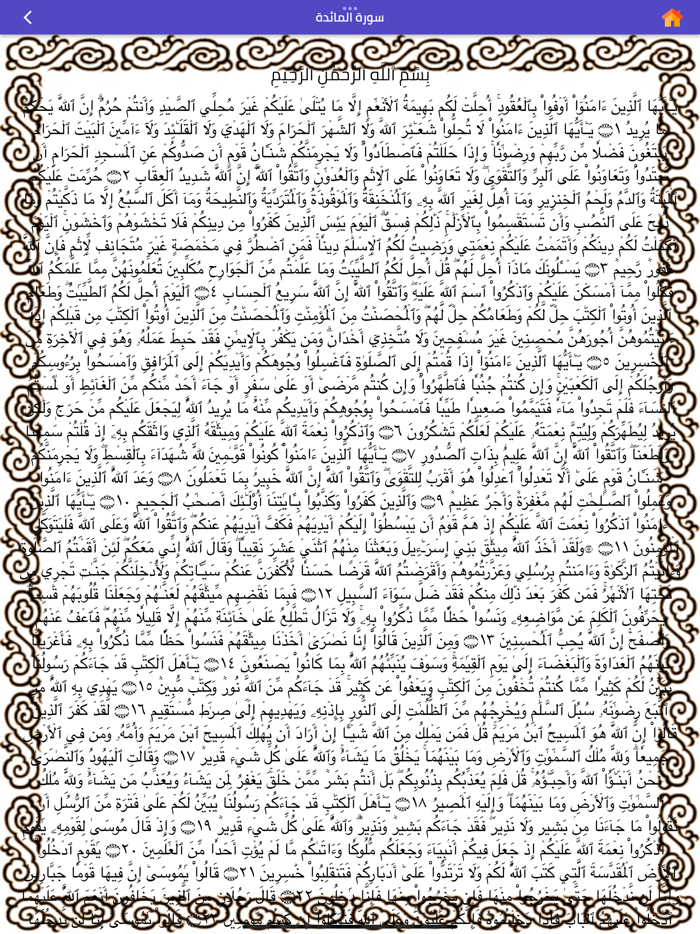 سورة المائدة
بِسْمِ ٱللَّهِ ٱلرَّحْمَٰنِ ٱلرَّحِيمِ
يَٰٓأَيُّهَا ٱلَّذِينَ ءَامَنُوٓا۟ أَوْفُوا۟ بِٱلْعُقُودِ ۚ أُحِلَّتْ لَكُم بَهِيمَةُ ٱلْأَنْعَٰمِ إِلَّا مَا يُتْلَىٰ عَلَيْكُمْ غَيْرَ مُحِلِّى ٱلصَّيْدِ وَأَنتُمْ حُرُمٌ ۗ إِنَّ ٱللَّهَ يَحْكُمُ
مَا يُرِيدُ ١ يَٰٓأَيُّهَا ٱلَّذِينَ ءَامَنُوا۟ لَا تُحِلُّوا۟ شَعَٰٓئِرَ ٱللَّهِ وَلَا ٱلشَّهْرَ ٱلْحَرَامَ وَلَا ٱلْهَدْىَ وَلَا ٱلْقَلَٰٓئِدَ وَلَآ ءَآمِّينَ ٱلْبَيْتَ ٱلْحَرَامَ
يَبْتَغُونَ فَضْلًا مِّن رَّبِّهِمْ وَرِضْوَٰنًا ۚ وَإِذَا حَلَلْتُمْ فَٱصْطَادُوا۟ ۚ وَلَا يَجْرِمَنَّكُمْ شَنَـَٔانُ قَوْمٍ أَن صَدُّوكُمْ عَنِ ٱلْمَسْجِدِ ٱلْحَرَامِ أَن
تَعْتَدُوا۟ ۘ وَتَعَاوَنُوا۟ عَلَى ٱلْبِرِّ وَٱلتَّقْوَىٰ ۖ وَلَا تَعَاوَنُوا۟ عَلَى ٱلْإِثْمِ وَٱلْعُدْوَٰنِ ۚ وَٱتَّقُوا۟ ٱللَّهَ ۖ إِنَّ ٱللَّهَ شَدِيدُ ٱلْعِقَابِ ٢ حُرِّمَتْ عَلَيْكُمُ
ٱلْمَيْتَةُ وَٱلدَّمُ وَلَحْمُ ٱلْخِنزِيرِ وَمَآ أُهِلَّ لِغَيْرِ ٱللَّهِ بِهِۦ وَٱلْمُنْخَنِقَةُ وَٱلْمَوْقُوذَةُ وَٱلْمُتَرَدِّيَةُ وَٱلنَّطِيحَةُ وَمَآ أَكَلَ ٱلسَّبُعُ إِلَّا مَا ذَكَّيْتُمْ وَمَا
ذُبِحَ عَلَى ٱلنُّصُبِ وَأَن تَسْتَقْسِمُوا۟ بِٱلْأَزْلَٰمِ ۚ ذَٰلِكُمْ فِسْقٌ ۗ ٱلْيَوْمَ يَئِسَ ٱلَّذِينَ كَفَرُوا۟ مِن دِينِكُمْ فَلَا تَخْشَوْهُمْ وَٱخْشَوْنِ ۚ ٱلْيَوْمَ
أَكْمَلْتُ لَكُمْ دِينَكُمْ وَأَتْمَمْتُ عَلَيْكُمْ نِعْمَتِى وَرَضِيتُ لَكُمُ ٱلْإِسْلَٰمَ دِينًا ۚ فَمَنِ ٱضْطُرَّ فِى مَخْمَصَةٍ غَيْرَ مُتَجَانِفٍ لِّإِثْمٍ ۙ فَإِنَّ ٱللَّهَ
غَفُورٌ رَّحِيمٌ ٣ يَسْـَٔلُونَكَ مَاذَآ أُحِلَّ لَهُمْ ۖ قُلْ أُحِلَّ لَكُمُ ٱلطَّيِّبَٰتُ ۙ وَمَا عَلَّمْتُم مِّنَ ٱلْجَوَارِحِ مُكَلِّبِينَ تُعَلِّمُونَهُنَّ مِمَّا عَلَّمَكُمُ ٱللَّهُ ۖ
فَكُلُوا۟ مِمَّآ أَمْسَكْنَ عَلَيْكُمْ وَٱذْكُرُوا۟ ٱسْمَ ٱللَّهِ عَلَيْهِ ۖ وَٱتَّقُوا۟ ٱللَّهَ ۚ إِنَّ ٱللَّهَ سَرِيعُ ٱلْحِسَابِ ٤ ٱلْيَوْمَ أُحِلَّ لَكُمُ ٱلطَّيِّبَٰتُ ۖ وَطَعَامُ
ٱلَّذِينَ أُوتُوا۟ ٱلْكِتَٰبَ حِلٌّ لَّكُمْ وَطَعَامُكُمْ حِلٌّ لَّهُمْ ۖ وَٱلْمُحْصَنَٰتُ مِنَ ٱلْمُؤْمِنَٰتِ وَٱلْمُحْصَنَٰتُ مِنَ ٱلَّذِينَ أُوتُوا۟ ٱلْكِتَٰبَ مِن قَبْلِكُمْ إِذَآ
ءَاتَيْتُمُوهُنَّ أُجُورَهُنَّ مُحْصِنِينَ غَيْرَ مُسَٰفِحِينَ وَلَا مُتَّخِذِىٓ أَخْدَانٍ ۗ وَمَن يَكْفُرْ بِٱلْإِيمَٰنِ فَقَدْ حَبِطَ عَمَلُهُۥ وَهُوَ فِى ٱلْءَاخِرَةِ مِنَ
ٱلْخَٰسِرِينَ ٥ يَٰٓأَيُّهَا ٱلَّذِينَ ءَامَنُوٓا۟ إِذَا قُمْتُمْ إِلَى ٱلصَّلَوٰةِ فَٱغْسِلُوا۟ وُجُوهَكُمْ وَأَيْدِيَكُمْ إِلَى ٱلْمَرَافِقِ وَٱمْسَحُوا۟ بِرُءُوسِكُمْ
وَأَرْجُلَكُمْ إِلَى ٱلْكَعْبَيْنِ ۚ وَإِن كُنتُمْ جُنُبًا فَٱطَّهَّرُوا۟ ۚ وَإِن كُنتُم مَّرْضَىٰٓ أَوْ عَلَىٰ سَفَرٍ أَوْ جَآءَ أَحَدٌ مِّنكُم مِّنَ ٱلْغَآئِطِ أَوْ لَٰمَسْتُمُ
ٱلنِّسَآءَ فَلَمْ تَجِدُوا۟ مَآءً فَتَيَمَّمُوا۟ صَعِيدًا طَيِّبًا فَٱمْسَحُوا۟ بِوُجُوهِكُمْ وَأَيْدِيكُم مِّنْهُ ۚ مَا يُرِيدُ ٱللَّهُ لِيَجْعَلَ عَلَيْكُم مِّنْ حَرَجٍ وَلَٰكِن
يُرِيدُ لِيُطَهِّرَكُمْ وَلِيُتِمَّ نِعْمَتَهُۥ عَلَيْكُمْ لَعَلَّكُمْ تَشْكُرُونَ ٦ وَٱذْكُرُوا۟ نِعْمَةَ ٱللَّهِ عَلَيْكُمْ وَمِيثَٰقَهُ ٱلَّذِى وَاثَقَكُم بِهِۦٓ إِذْ قُلْتُمْ سَمِعْنَا
وَأَطَعْنَا ۖ وَٱتَّقُوا۟ ٱللَّهَ ۚ إِنَّ ٱللَّهَ عَلِيمٌۢ بِذَاتِ ٱلصُّدُورِ ٧ يَٰٓأَيُّهَا ٱلَّذِينَ ءَامَنُوا۟ كُونُوا۟ قَوَّٰمِينَ لِلَّهِ شُهَدَآءَ بِٱلْقِسْطِ ۖ وَلَا يَجْرِمَنَّكُمْ
شَنَـَٔانُ قَوْمٍ عَلَىٰٓ أَلَّا تَعْدِلُوا۟ ۚ ٱعْدِلُوا۟ هُوَ أَقْرَبُ لِلتَّقْوَىٰ ۖ وَٱتَّقُوا۟ ٱللَّهَ ۚ إِنَّ ٱللَّهَ خَبِيرٌۢ بِمَا تَعْمَلُونَ ٨ وَعَدَ ٱللَّهُ ٱلَّذِينَ ءَامَنُوا۟
وَعَمِلُوا۟ ٱلصَّٰلِحَٰتِ ۙ لَهُم مَّغْفِرَةٌ وَأَجْرٌ عَظِيمٌ ٩ وَٱلَّذِينَ كَفَرُوا۟ وَكَذَّبُوا۟ بِـَٔايَٰتِنَآ أُو۟لَٰٓئِكَ أَصْحَٰبُ ٱلْجَحِيمِ ١٠ يَٰٓأَيُّهَا ٱلَّذِينَ
ءَامَنُوا۟ ٱذْكُرُوا۟ نِعْمَتَ ٱللَّهِ عَلَيْكُمْ إِذْ هَمَّ قَوْمٌ أَن يَبْسُطُوٓا۟ إِلَيْكُمْ أَيْدِيَهُمْ فَكَفَّ أَيْدِيَهُمْ عَنكُمْ ۖ وَٱتَّقُوا۟ ٱللَّهَ ۚ وَعَلَى ٱللَّهِ فَلْيَتَوَكَّلِ
ٱلْمُؤْمِنُونَ ١١ ۞ وَلَقَدْ أَخَذَ ٱللَّهُ مِيثَٰقَ بَنِىٓ إِسْرَٰٓءِيلَ وَبَعَثْنَا مِنْهُمُ ٱثْنَىْ عَشَرَ نَقِيبًا ۖ وَقَالَ ٱللَّهُ إِنِّى مَعَكُمْ ۖ لَئِنْ أَقَمْتُمُ ٱلصَّلَوٰةَ
وَءَاتَيْتُمُ ٱلزَّكَوٰةَ وَءَامَنتُم بِرُسُلِى وَعَزَّرْتُمُوهُمْ وَأَقْرَضْتُمُ ٱللَّهَ قَرْضًا حَسَنًا لَّأُكَفِّرَنَّ عَنكُمْ سَيِّـَٔاتِكُمْ وَلَأُدْخِلَنَّكُمْ جَنَّٰتٍ تَجْرِى مِن
تَحْتِهَا ٱلْأَنْهَٰرُ ۚ فَمَن كَفَرَ بَعْدَ ذَٰلِكَ مِنكُمْ فَقَدْ ضَلَّ سَوَآءَ ٱلسَّبِيلِ ١٢ فَبِمَا نَقْضِهِم مِّيثَٰقَهُمْ لَعَنَّٰهُمْ وَجَعَلْنَا قُلُوبَهُمْ قَٰسِيَةً ۖ
يُحَرِّفُونَ ٱلْكَلِمَ عَن مَّوَاضِعِهِۦ ۙ وَنَسُوا۟ حَظًّا مِّمَّا ذُكِّرُوا۟ بِهِۦ ۚ وَلَا تَزَالُ تَطَّلِعُ عَلَىٰ خَآئِنَةٍ مِّنْهُمْ إِلَّا قَلِيلًا مِّنْهُمْ ۖ فَٱعْفُ عَنْهُمْ
وَٱصْفَحْ ۚ إِنَّ ٱللَّهَ يُحِبُّ ٱلْمُحْسِنِينَ ١٣ وَمِنَ ٱلَّذِينَ قَالُوٓا۟ إِنَّا نَصَٰرَىٰٓ أَخَذْنَا مِيثَٰقَهُمْ فَنَسُوا۟ حَظًّا مِّمَّا ذُكِّرُوا۟ بِهِۦ فَأَغْرَيْنَا
بَيْنَهُمُ ٱلْعَدَاوَةَ وَٱلْبَغْضَآءَ إِلَىٰ يَوْمِ ٱلْقِيَٰمَةِ ۚ وَسَوْفَ يُنَبِّئُهُمُ ٱللَّهُ بِمَا كَانُوا۟ يَصْنَعُونَ ١٤ يَٰٓأَهْلَ ٱلْكِتَٰبِ قَدْ جَآءَكُمْ رَسُولُنَا
يُبَيِّنُ لَكُمْ كَثِيرًا مِّمَّا كُنتُمْ تُخْفُونَ مِنَ ٱلْكِتَٰبِ وَيَعْفُوا۟ عَن كَثِيرٍ ۚ قَدْ جَآءَكُم مِّنَ ٱللَّهِ نُورٌ وَكِتَٰبٌ مُّبِينٌ ١٥ يَهْدِى بِهِ ٱللَّهُ مَنِ
ٱتَّبَعَ رِضْوَٰنَهُۥ سُبُلَ ٱلسَّلَٰمِ وَيُخْرِجُهُم مِّنَ ٱلظُّلُمَٰتِ إِلَى ٱلنُّورِ بِإِذْنِهِۦ وَيَهْدِيهِمْ إِلَىٰ صِرَٰطٍ مُّسْتَقِيمٍ ١٦ لَّقَدْ كَفَرَ ٱلَّذِينَ
قَالُوٓا۟ إِنَّ ٱللَّهَ هُوَ ٱلْمَسِيحُ ٱبْنُ مَرْيَمَ ۚ قُلْ فَمَن يَمْلِكُ مِنَ ٱللَّهِ شَيْـًٔا إِنْ أَرَادَ أَن يُهْلِكَ ٱلْمَسِيحَ ٱبْنَ مَرْيَمَ وَأُمَّهُۥ وَمَن فِى ٱلْأَرْضِ
جَمِيعًا ۗ وَلِلَّهِ مُلْكُ ٱلسَّمَٰوَٰتِ وَٱلْأَرْضِ وَمَا بَيْنَهُمَا ۚ يَخْلُقُ مَا يَشَآءُ ۚ وَٱللَّهُ عَلَىٰ كُلِّ شَىْءٍ قَدِيرٌ ١٧ وَقَالَتِ ٱلْيَهُودُ وَٱلنَّصَٰرَىٰ
نَحْنُ أَبْنَٰٓؤُا۟ ٱللَّهِ وَأَحِبَّٰٓؤُهُۥ ۚ قُلْ فَلِمَ يُعَذِّبُكُم بِذُنُوبِكُم ۖ بَلْ أَنتُم بَشَرٌ مِّمَّنْ خَلَقَ ۚ يَغْفِرُ لِمَن يَشَآءُ وَيُعَذِّبُ مَن يَشَآءُ ۚ وَلِلَّهِ مُلْكُ
ٱلسَّمَٰوَٰتِ وَٱلْأَرْضِ وَمَا بَيْنَهُمَا ۖ وَإِلَيْهِ ٱلْمَصِيرُ ١٨ يَٰٓأَهْلَ ٱلْكِتَٰبِ قَدْ جَآءَكُمْ رَسُولُنَا يُبَيِّنُ لَكُمْ عَلَىٰ فَتْرَةٍ مِّنَ ٱلرُّسُلِ أَن
تَقُولُوا۟ مَا جَآءَنَا مِنۢ بَشِيرٍ وَلَا نَذِيرٍ ۖ فَقَدْ جَآءَكُم بَشِيرٌ وَنَذِيرٌ ۗ وَٱللَّهُ عَلَىٰ كُلِّ شَىْءٍ قَدِيرٌ ١٩ وَإِذْ قَالَ مُوسَىٰ لِقَوْمِهِۦ يَٰقَوْمِ
ٱذْكُرُوا۟ نِعْمَةَ ٱللَّهِ عَلَيْكُمْ إِذْ جَعَلَ فِيكُمْ أَنۢبِيَآءَ وَجَعَلَكُم مُّلُوكًا وَءَاتَىٰكُم مَّا لَمْ يُؤْتِ أَحَدًا مِّنَ ٱلْعَٰلَمِينَ ٢٠ يَٰقَوْمِ ٱدْخُلُوا۟
ٱلْأَرْضَ ٱلْمُقَدَّسَةَ ٱلَّتِى كَتَبَ ٱللَّهُ لَكُمْ وَلَا تَرْتَدُّوا۟ عَلَىٰٓ أَدْبَارِكُمْ فَتَنقَلِبُوا۟ خَٰسِرِينَ ٢١ قَالُوا۟ يَٰمُوسَىٰٓ إِنَّ فِيهَا قَوْمًا جَبَّارِينَ
وَإِنَّا لَن نَّدْخُلَهَا حَتَّىٰ يَخْرُجُوا۟ مِنْهَا فَإِن يَخْرُجُوا۟ مِنْهَا فَإِنَّا دَٰخِلُونَ ٢٢ قَالَ رَجُلَانِ مِنَ ٱلَّذِينَ يَخَافُونَ أَنْعَمَ ٱللَّهُ عَلَيْهِمَا
ٱدْخُلُوا۟ عَلَيْهِمُ ٱلْبَابَ فَإِذَا دَخَلْتُمُوهُ فَإِنَّكُمْ غَٰلِبُونَ ۚ وَعَلَى ٱللَّهِ فَتَوَكَّلُوٓا۟ إِن كُنتُم مُّؤْمِنِينَ ٢٣ قَالُوا۟ يَٰمُوسَىٰٓ إِنَّا لَن نَّدْخُلَهَآ